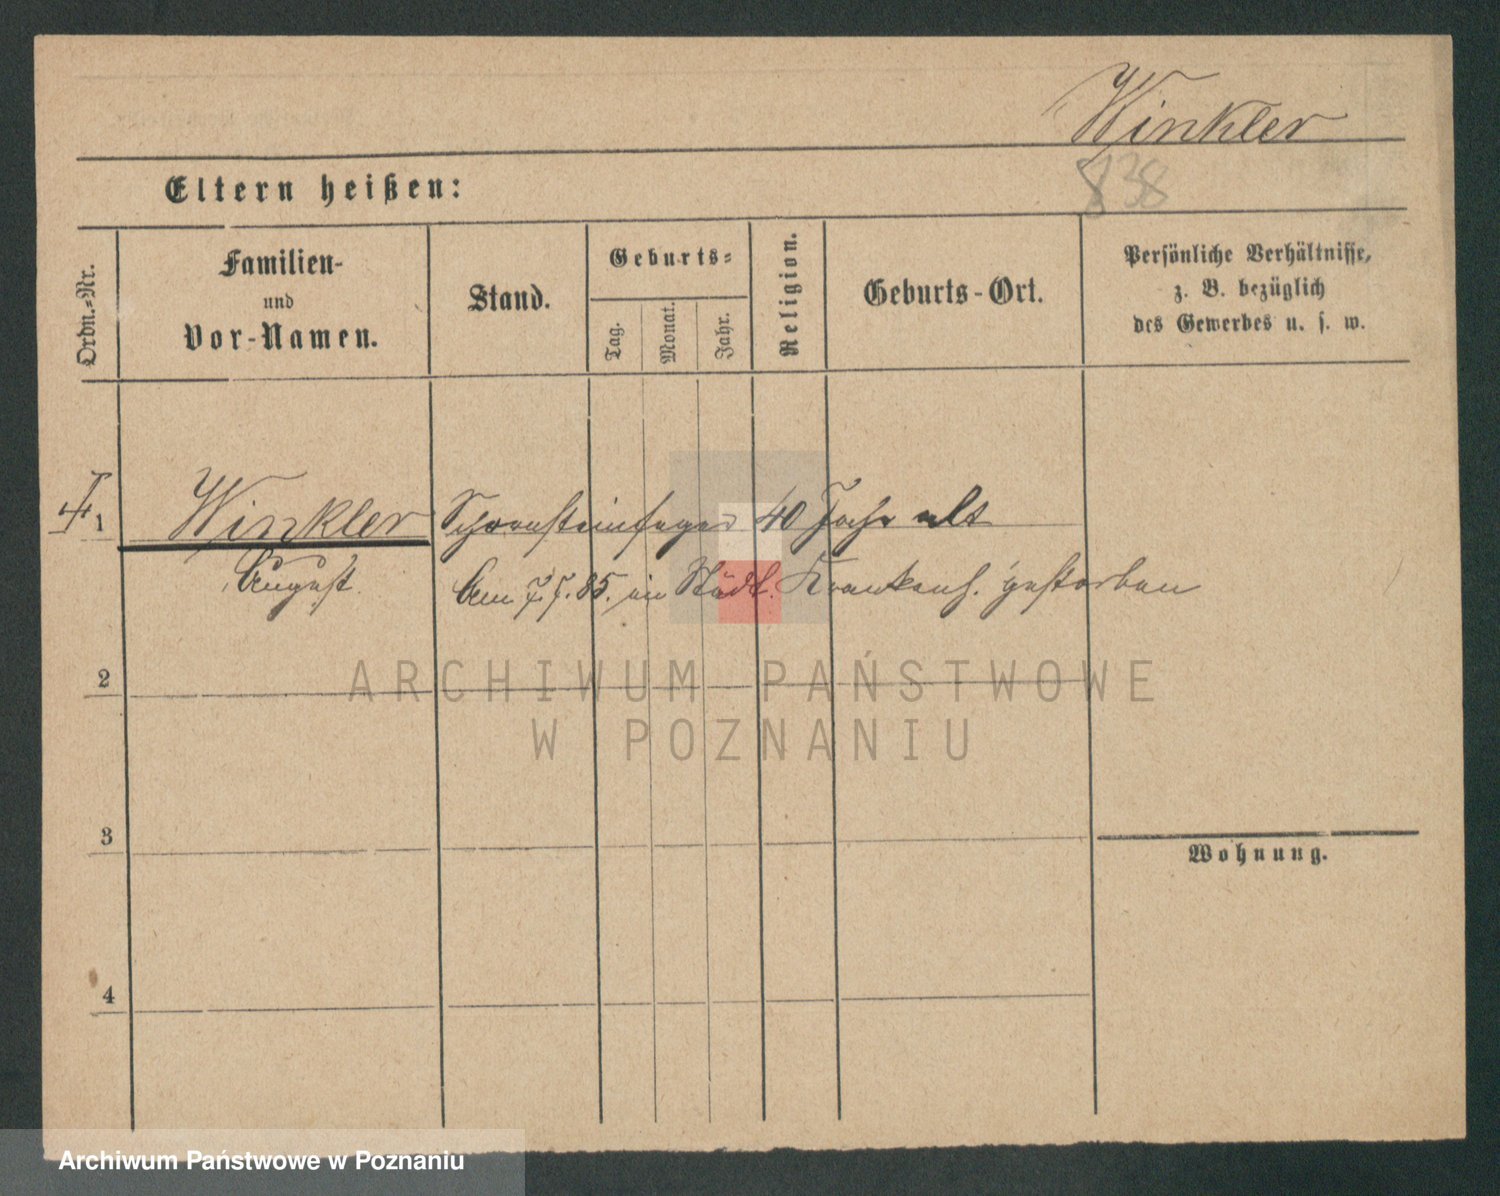 Winkler
838
Eltern heißen:
Ordn.-Nr.
Familien-
und
Vor-Namen.
Stand.
Geburts-
Tag.
Monat.
Jahr.
Religion.
Geburts-Ort.
Persönliche Verhältnisse,
z. B. bezüglich
des Gewerbes u. s. w.
1 Winkler Schornsteinfeger 40 Jahr alt
August Am 7.7.85. im Städt. Krankenh. gestorben
2
ARCHIWUM PAŃSTWOWE
W POZNANIU
3
Wohnung.
4
Archiwum Państwowe w Poznaniu